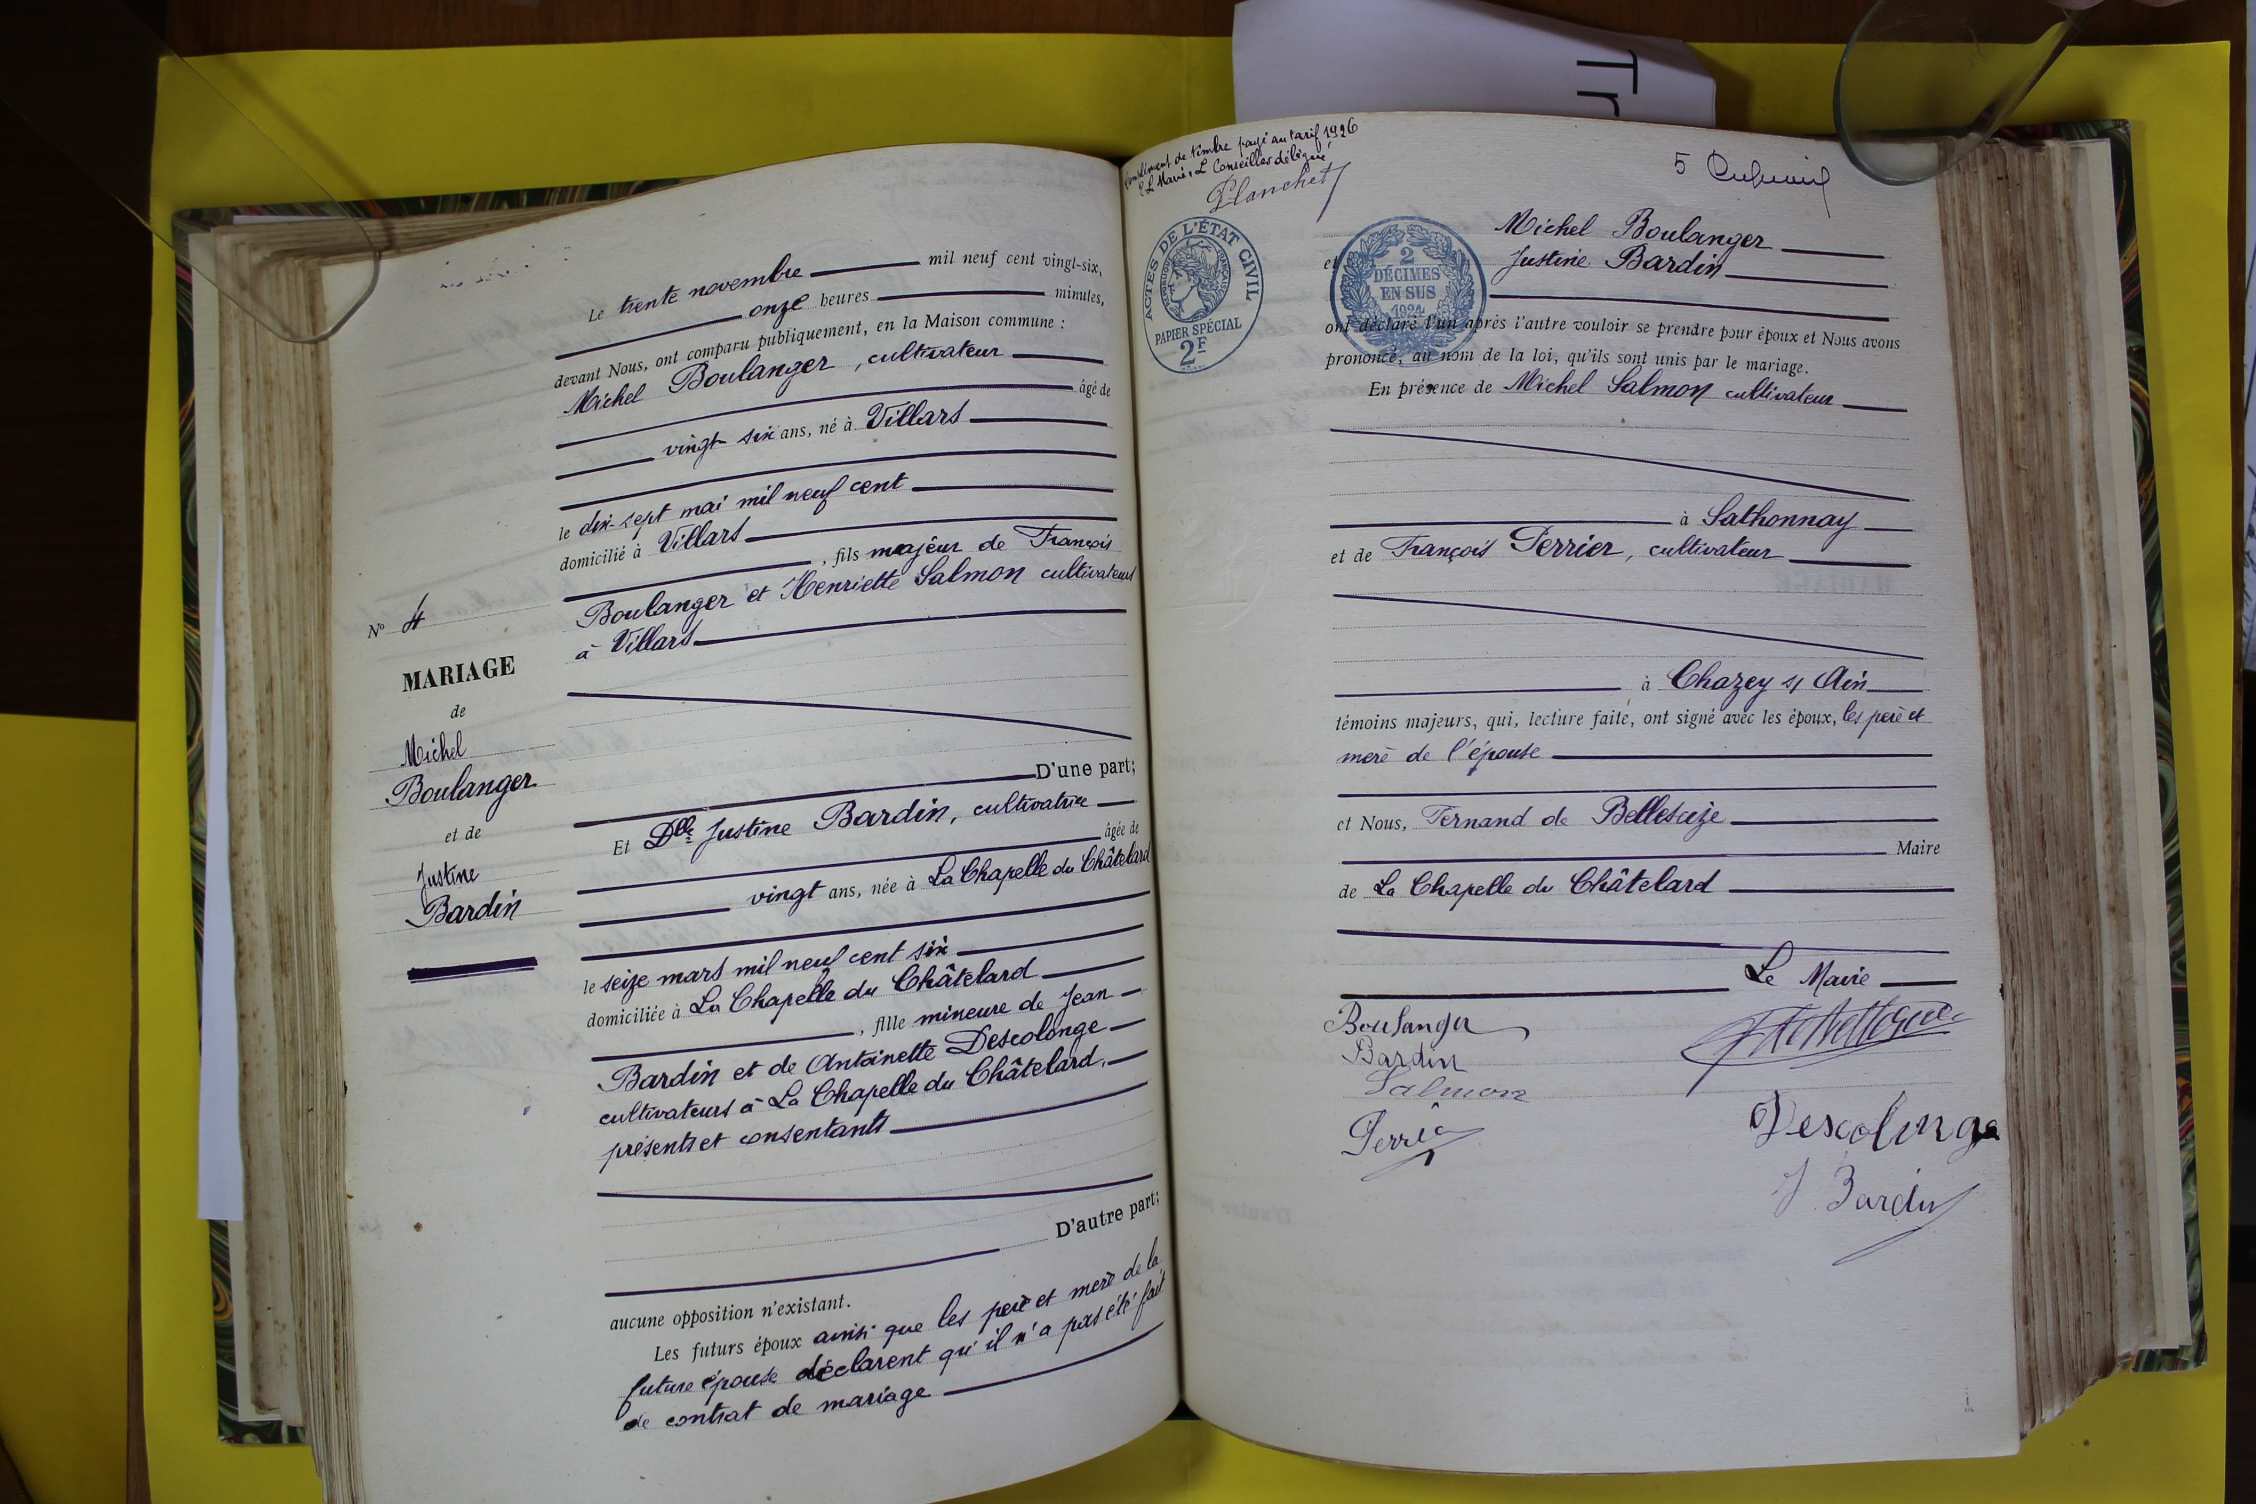 Le trente novembre mil neuf cent vingt-six,
onze heures minutes,
devant Nous, ont comparu publiquement, en la Maison commune :
Michel Boulanger, cultivateur
âgé de
vingt-six ans, né à Villars
le dix-sept mai mil neuf cent
domicilié à Villars
, fils majeur de François
Boulanger et Henriette Salmon cultivateurs
à Villars
N° 4
MARIAGE
de
Michel
Boulanger
et de
Justine
Bardin
D'une part;
Et Dlle Justine Bardin, cultivatrice
âgée de
vingt ans, née à La Chapelle du Châtelard
le seize mars mil neuf cent six
domiciliée à La Chapelle du Châtelard
, fille mineure de Jean
Bardin et de Antoinette Descolonge
cultivateurs à La Chapelle du Châtelard,
présents et consentants
D'autre part;
aucune opposition n'existant.
Les futurs époux ainsi que les père et mère de la
future épouse déclarent qu'il n'a pas été fait
de contrat de mariage
Complément de timbre payé au tarif 1926
Le Conseiller délégué
Planchet
5
ACTES DE L'ÉTAT CIVIL
PAPIER SPÉCIAL
2F
2
DÉCIMES
EN SUS
1924
Michel Boulanger
et Justine Bardin
ont déclaré l'un après l'autre vouloir se prendre pour époux et Nous avons
prononcé, au nom de la loi, qu'ils sont unis par le mariage.
En présence de Michel Salmon cultivateur
à Sathonnay
et de François Perrier, cultivateur
à Chazey s/ Ain
témoins majeurs, qui, lecture faite, ont signé avec les époux, les père et
mère de l'épouse
et Nous, Fernand de Bellescize
Maire
de La Chapelle du Châtelard
Le Maire
Boulanger
Bardin
Salmon
Perrier
Descolonge
J Bardin
Tr